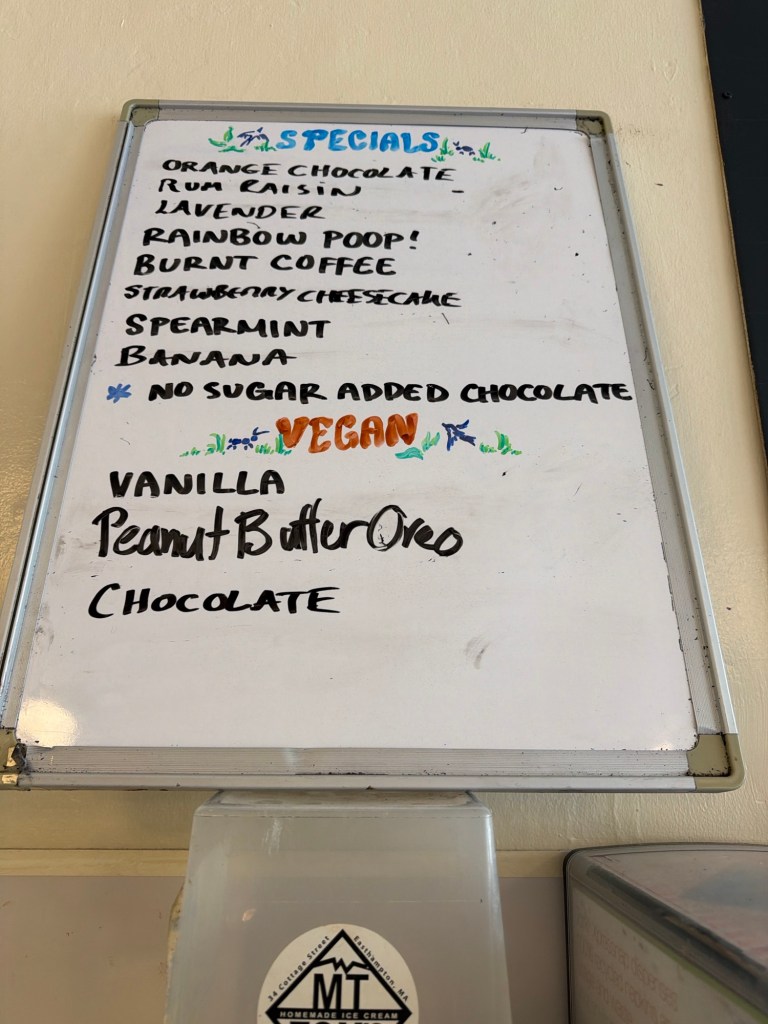 SPECIALS
ORANGE CHOCOLATE
RUM RAISIN
LAVENDER
RAINBOW POOP!
BURNT COFFEE
STRAWBERRY CHEESECAKE
SPEARMINT
BANANA
* NO SUGAR ADDED CHOCOLATE
VEGAN
VANILLA
Peanut Butter Oreo
CHOCOLATE
34 Cottage Street
Easthampton, MA
MT
HOMEMADE ICE CREAM